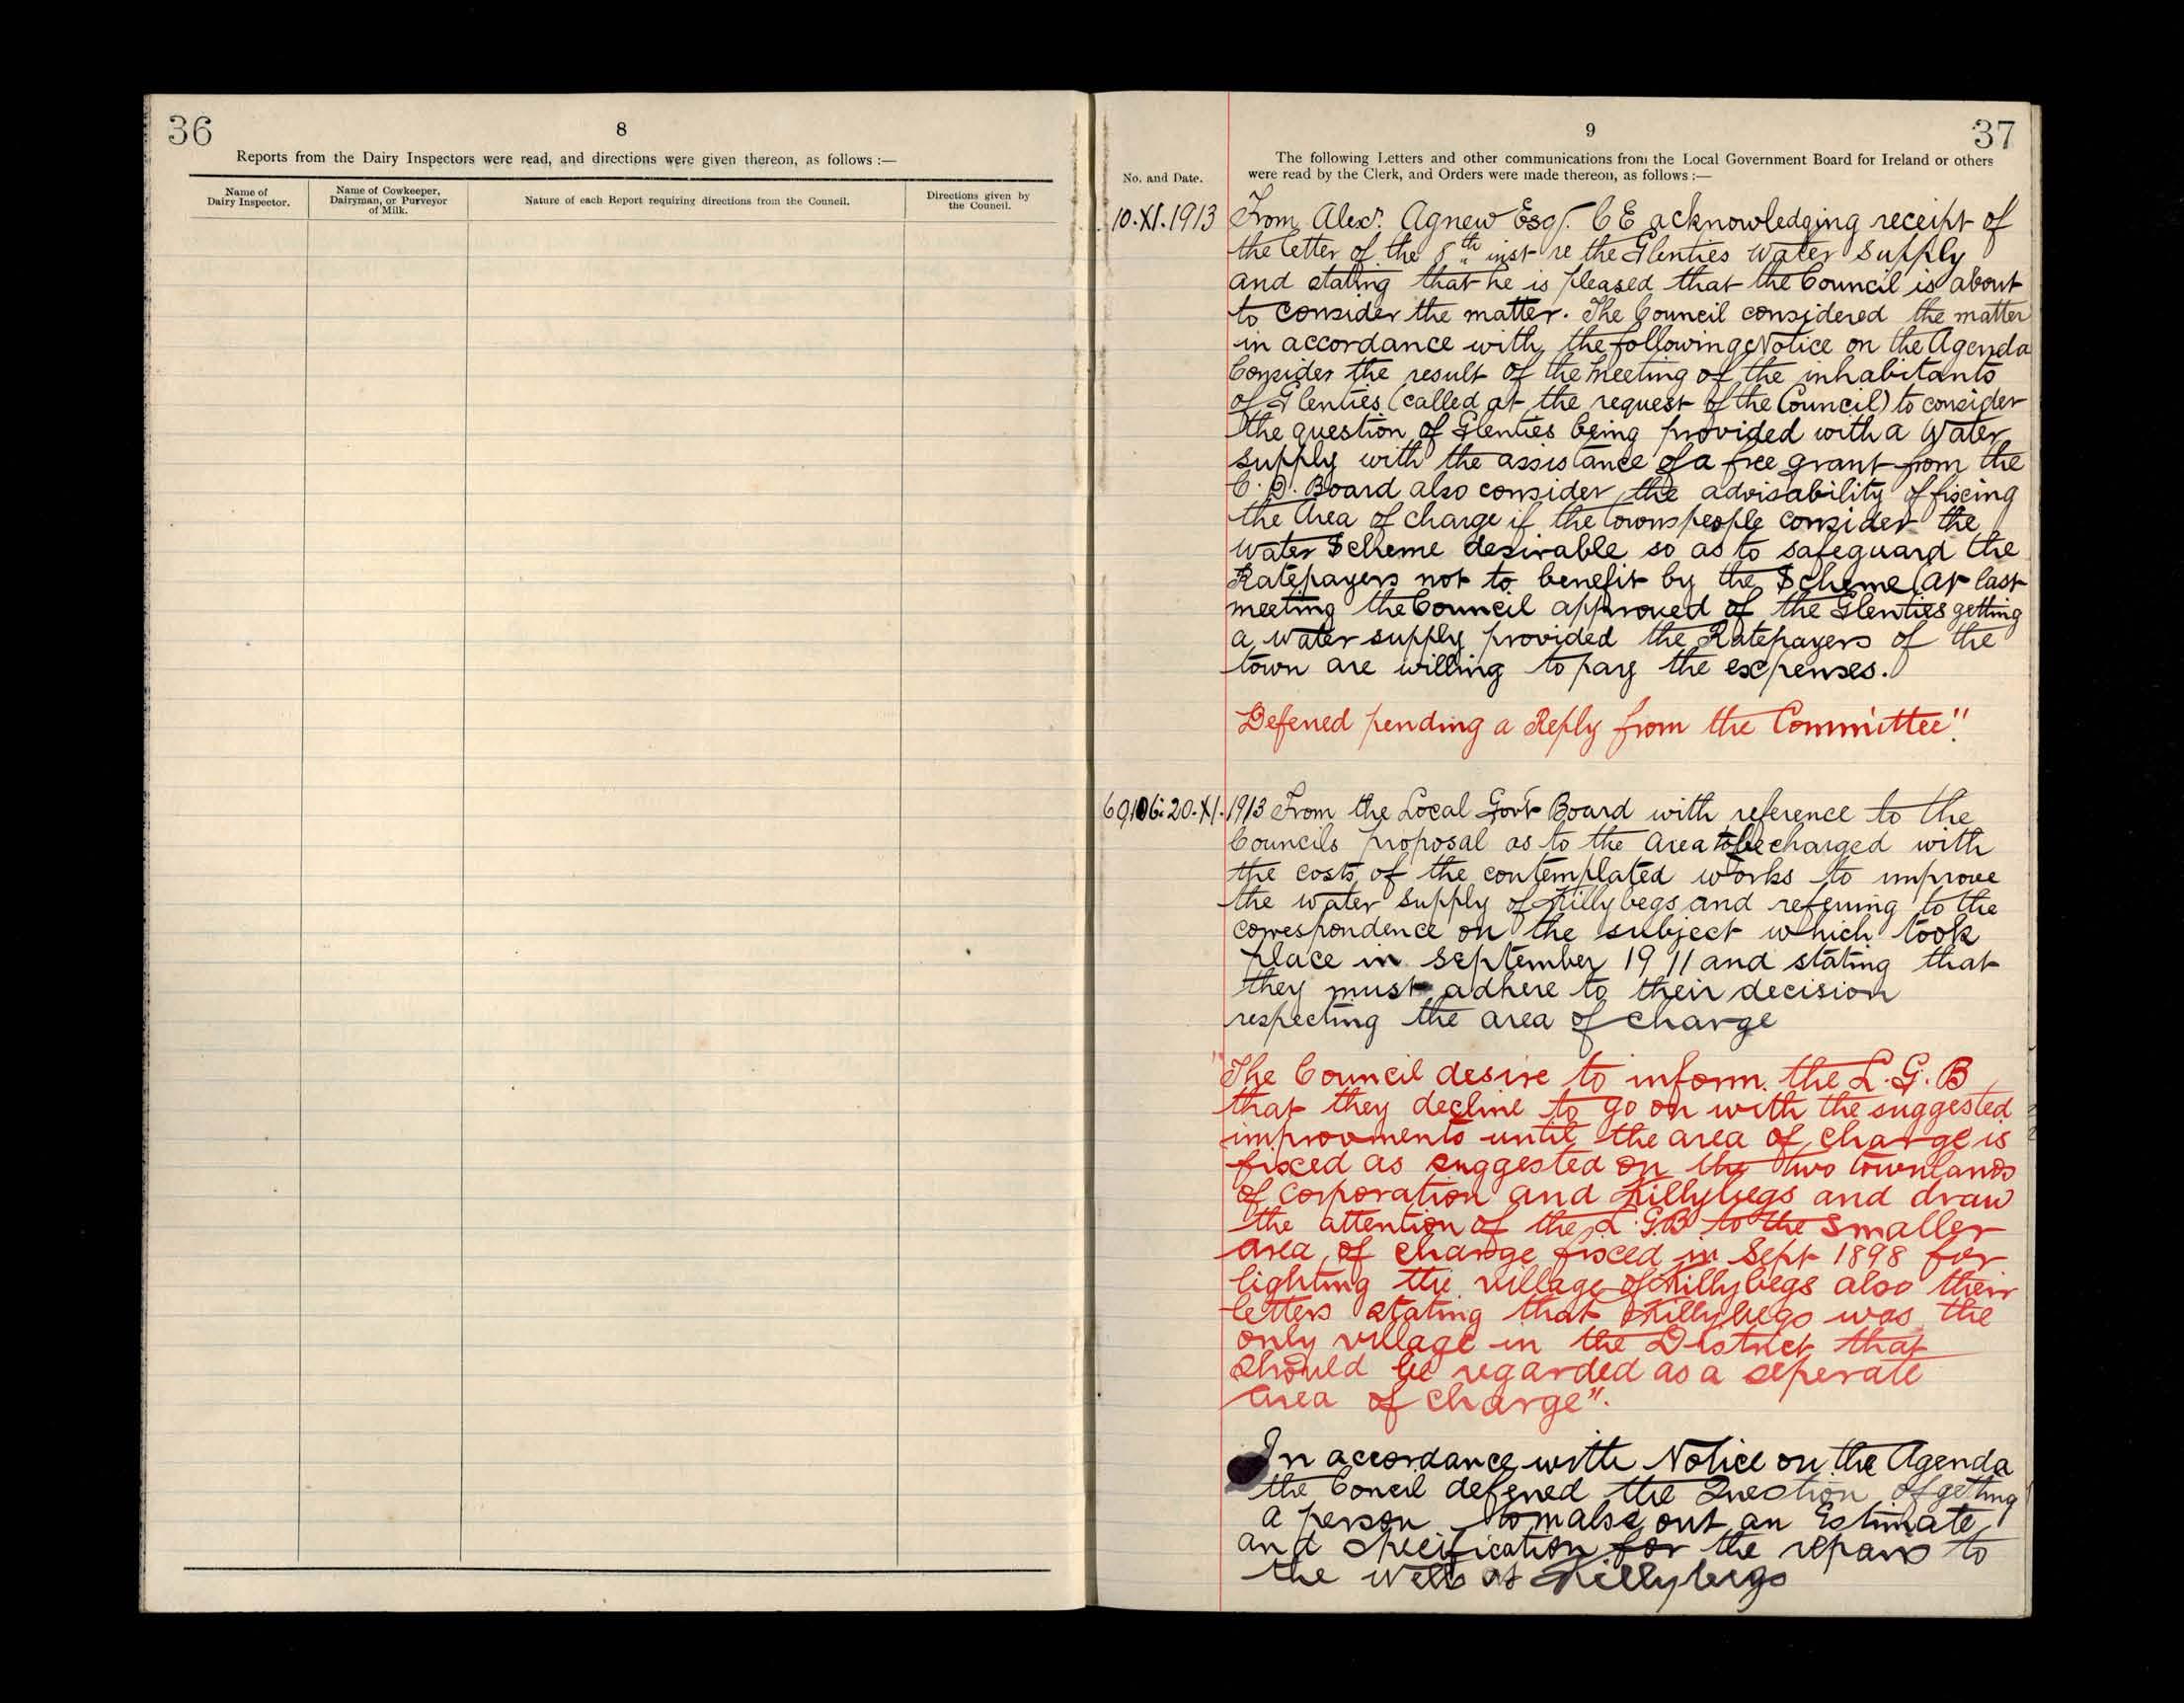 36
8
Reports from the Dairy Inspectors were read, and directions were given thereon, as follows :—
Name of
Dairy Inspector.
Name of Cowkeeper,
Dairyman, or Purveyor
of Milk.
Nature of each Report requiring directions from the Council.
Directions given by
the Council.
9
37
The following Letters and other communications from the Local Government Board for Ireland or others
No. and Date.
were read by the Clerk, and Orders were made thereon, as follows :—
10.XI.1913 From Alexr. Agnew Esq. C E acknowledging receipt of
the letter of the 8th inst re the Glenties Water Supply
and stating that he is pleased that the Council is about
to consider the matter. The Council considered the matter
in accordance with the following Notice on the Agenda
Consider the result of the Meeting of the inhabitants
of Glenties (called at the request of the Council) to consider
the question of Glenties being provided with a Water
supply with the assistance of a free grant from the
C. D. Board also consider the advisability of fixing
the Area of charge if the Townspeople consider the
Water Scheme desirable so as to safeguard the
Ratepayers not to benefit by the Scheme (at last
meeting the Council approved of the Glenties getting
a water supply provided the Ratepayers of the
town are willing to pay the expenses.
Deferred pending a Reply from the Committee".
69106: 20.XI.1913 From the Local Govt Board with reference to the
Councils proposal as to the Area to be charged with
the costs of the contemplated works to improve
the water supply of Killybegs and referring to the
correspondence on the subject which took
place in September 1911 and stating that
they must adhere to their decision
respecting the area of charge
"The Council desire to inform the L. G. B
that they decline to go on with the suggested
improvments until the area of charge is
fixed as suggested on the two townlands
of Corporation and Killybegs and draw
the attention of the L. G. B to the smaller
area of charge fixed in Sept 1898 for
lighting the village of Killybegs also their
letters stating that Killybegs was the
only village in the District that
should be regarded as a seperate
area of charge".
In accordance with Notice on the Agenda
the Concil deferred the Question of getting
a person to make out an Estimate
and specification for the repairs to
the Well at Killybegs